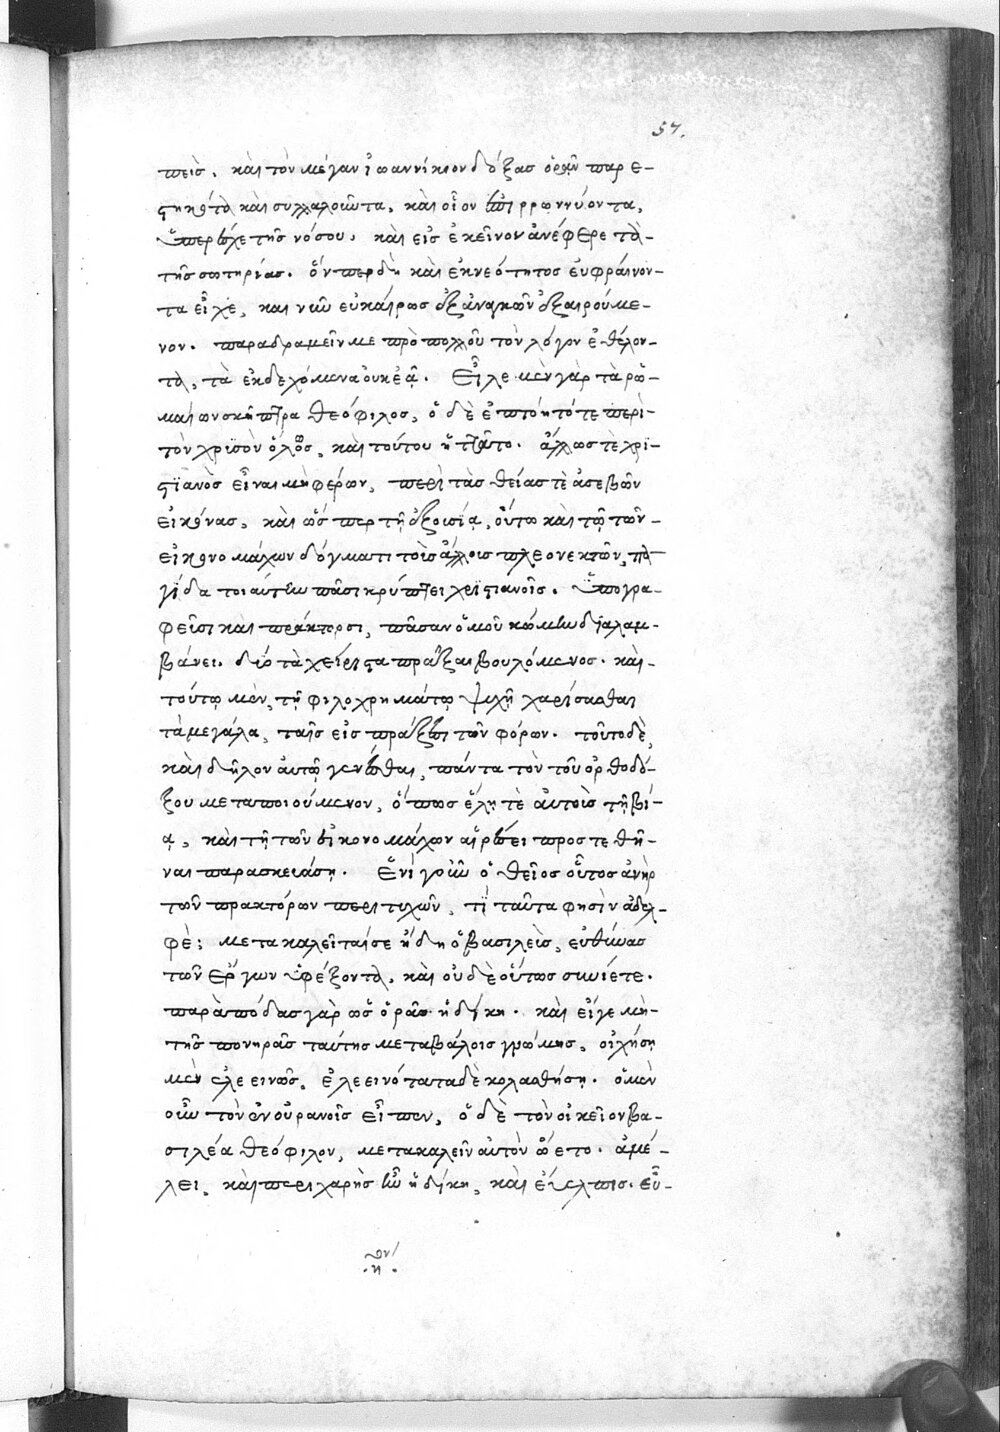 57.
πεὶς. καὶ τὸν μέγαν ἰωαννίκιον δόξας ὁρᾷν παρε-
στηκότα καὶ συλλαλοῦντα, καὶ οἷον ἐπιρρωννύοντα,
ὑπερέσχε τῆς νόσου, καὶ εἰς ἐκεῖνον ἀνέφερε τὰ-
τῆς σωτηρίας. ὅνπερ δὴ καὶ ἐκ νεότητος εὐφραίνον-
τα εἶχε, και νῦν εὐκαίρως ἐξ ἀναγκῶν ἐξαιρούμε-
νον. παραδραμεῖν με πρὸ πολλοῦ τὸν λόγον ἐθέλον-
τα, τὰ ἐκδεχόμενα οὐκ ἐᾷ. Εἶλε μὲν γὰρ τὰ ῥω-
μαίων σκῆπτρα θεόφιλος, ὁ δὲ ἐπτόητό τε περὶ-
τὸν χρυσὸν ὅλως, καὶ τούτου ἥττητο. ἄλλως τὲ χρι-
στϊανὸς εἶναι μὴ φέρων, περὶ τὰς θείας τὲ ἀσεβῶν
εἰκόνας, καὶ ὥς περ τῇ ἐξουσίᾳ, οὕτω καὶ τῷ τῶν-
εἰκονομάχων δόγματι τοῖς ἄλλοις πλεονεκτῶν, πα
γίδα τοιαύτην πᾶσι κρύπτει χριστιανοῖς. Ὑπογρα-
φεῦσι καὶ πράκτορσι, πᾶσαν ὁμοῦ κώμην διαλαμ-
βάνει. διὸ τὰ χείριστα πρᾶξαι βουλόμενος. καὶ-
τούτῳ μὲν, τῇ φιλοχρημάτῳ ψυχῇ χαρίσασθαι
τὰ μεγάλα, ταῖς εἰσπράξεσι τῶν φόρων. τοῦτο δὲ,
καὶ δῆλον αὐτῷ γενέσθαι, πάντα τὸν τοῦ ὀρθοδό-
ξου μεταποιούμενον, ὅπως ἕλῃ τὲ αὐτοὺς τῇ βί-
ᾳ, καὶ τῇ τῶν εἰκονομάχων αἱρέσει προστεθῆ-
ναι παρασκευάσῃ. Ἑνὶ γοῦν ὁ θεῖος οὗτος ἀνὴρ
τῶν πρακτόρων περιτυχὼν, τί ταῦτα φησὶν ἀδελ-
φὲ; μετακαλεῖταί σε ἤδη ὁ βασιλεὺς, εὐθύνας
τῶν ἔργων ὑφέξοντα, καὶ οὐδὲ οὕτως συνίετε.
παρὰ πόδας γὰρ ὡς ὁρᾷς ἡ δίκη. καὶ εἴγε μὴ-
τῆς πονηρᾶς ταύτης μεταβάλοις γνώμης, οἰχήσῃ
μὲν ἐλεεινῶς, ἐλεεινότατα δὲ κολασθήσῃ. ὁ μὲν
οὖν τὸν ἐν οὐρανοῖς εἶπεν, ὁ δὲ τὸν οἰκεῖον βα-
σιλέα θεόφιλον, μετακαλεῖν αὐτὸν ᾤετο. ἀμέ-
λει, καὶ περιχαρὴς ἦν ἡ δίκη, καὶ εὔελπις. εὖ-